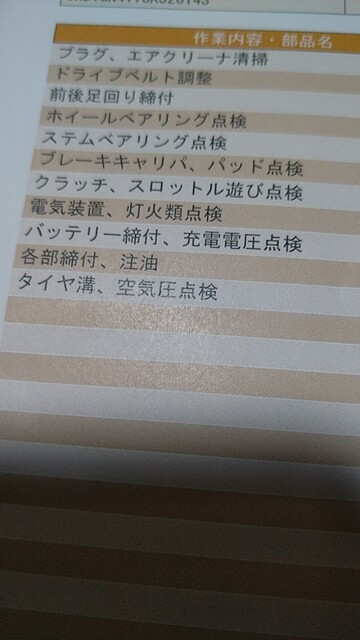 作業内容・部品名
プラグ、エアクリーナ清掃
ドライブベルト調整
前後足回り締付
ホイールベアリング点検
ステムベアリング点検
ブレーキキャリパ、パッド点検
クラッチ、スロットル遊び点検
電気装置、灯火類点検
バッテリー締付、充電電圧点検
各部締付、注油
タイヤ溝、空気圧点検